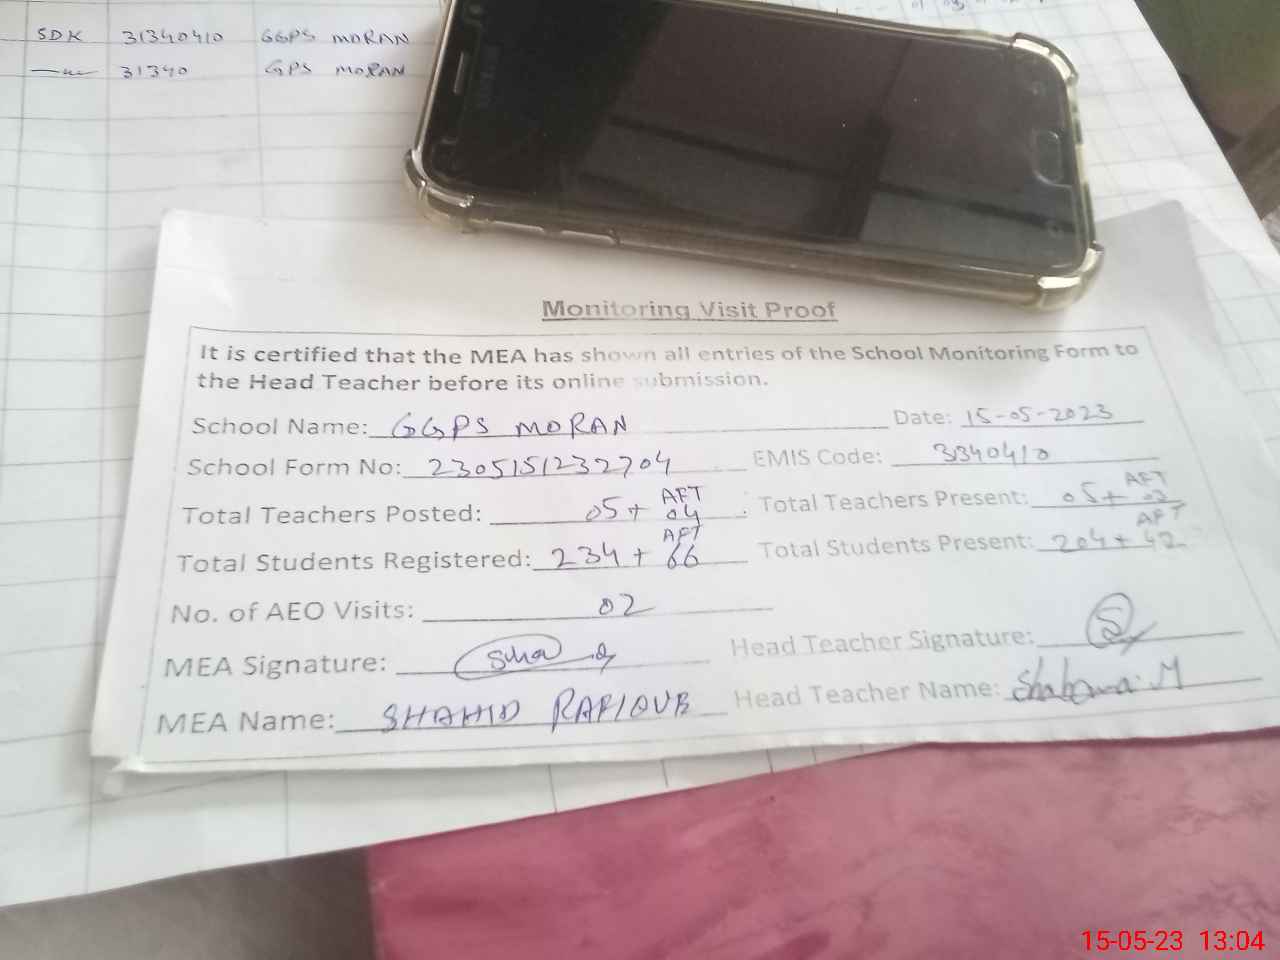 SDK 31340410 GGPS MORAN
31340 GPS MORAN
Monitoring Visit Proof
It is certified that the MEA has shown all entries of the School Monitoring Form to
the Head Teacher before its online submission.
School Name: GGPS MORAN Date: 15-05-2023
School Form No: 2305151232704 EMIS Code: 3340410
Total Teachers Posted: 05+ AFT 04 Total Teachers Present: 05+ AFT 03
Total Students Registered: 234 + AFT 66 Total Students Present: 204+ AFT 42
No. of AEO Visits: 02
MEA Signature: Head Teacher Signature:
MEA Name: SHAHID Head Teacher Name:
15-05-23 13:04